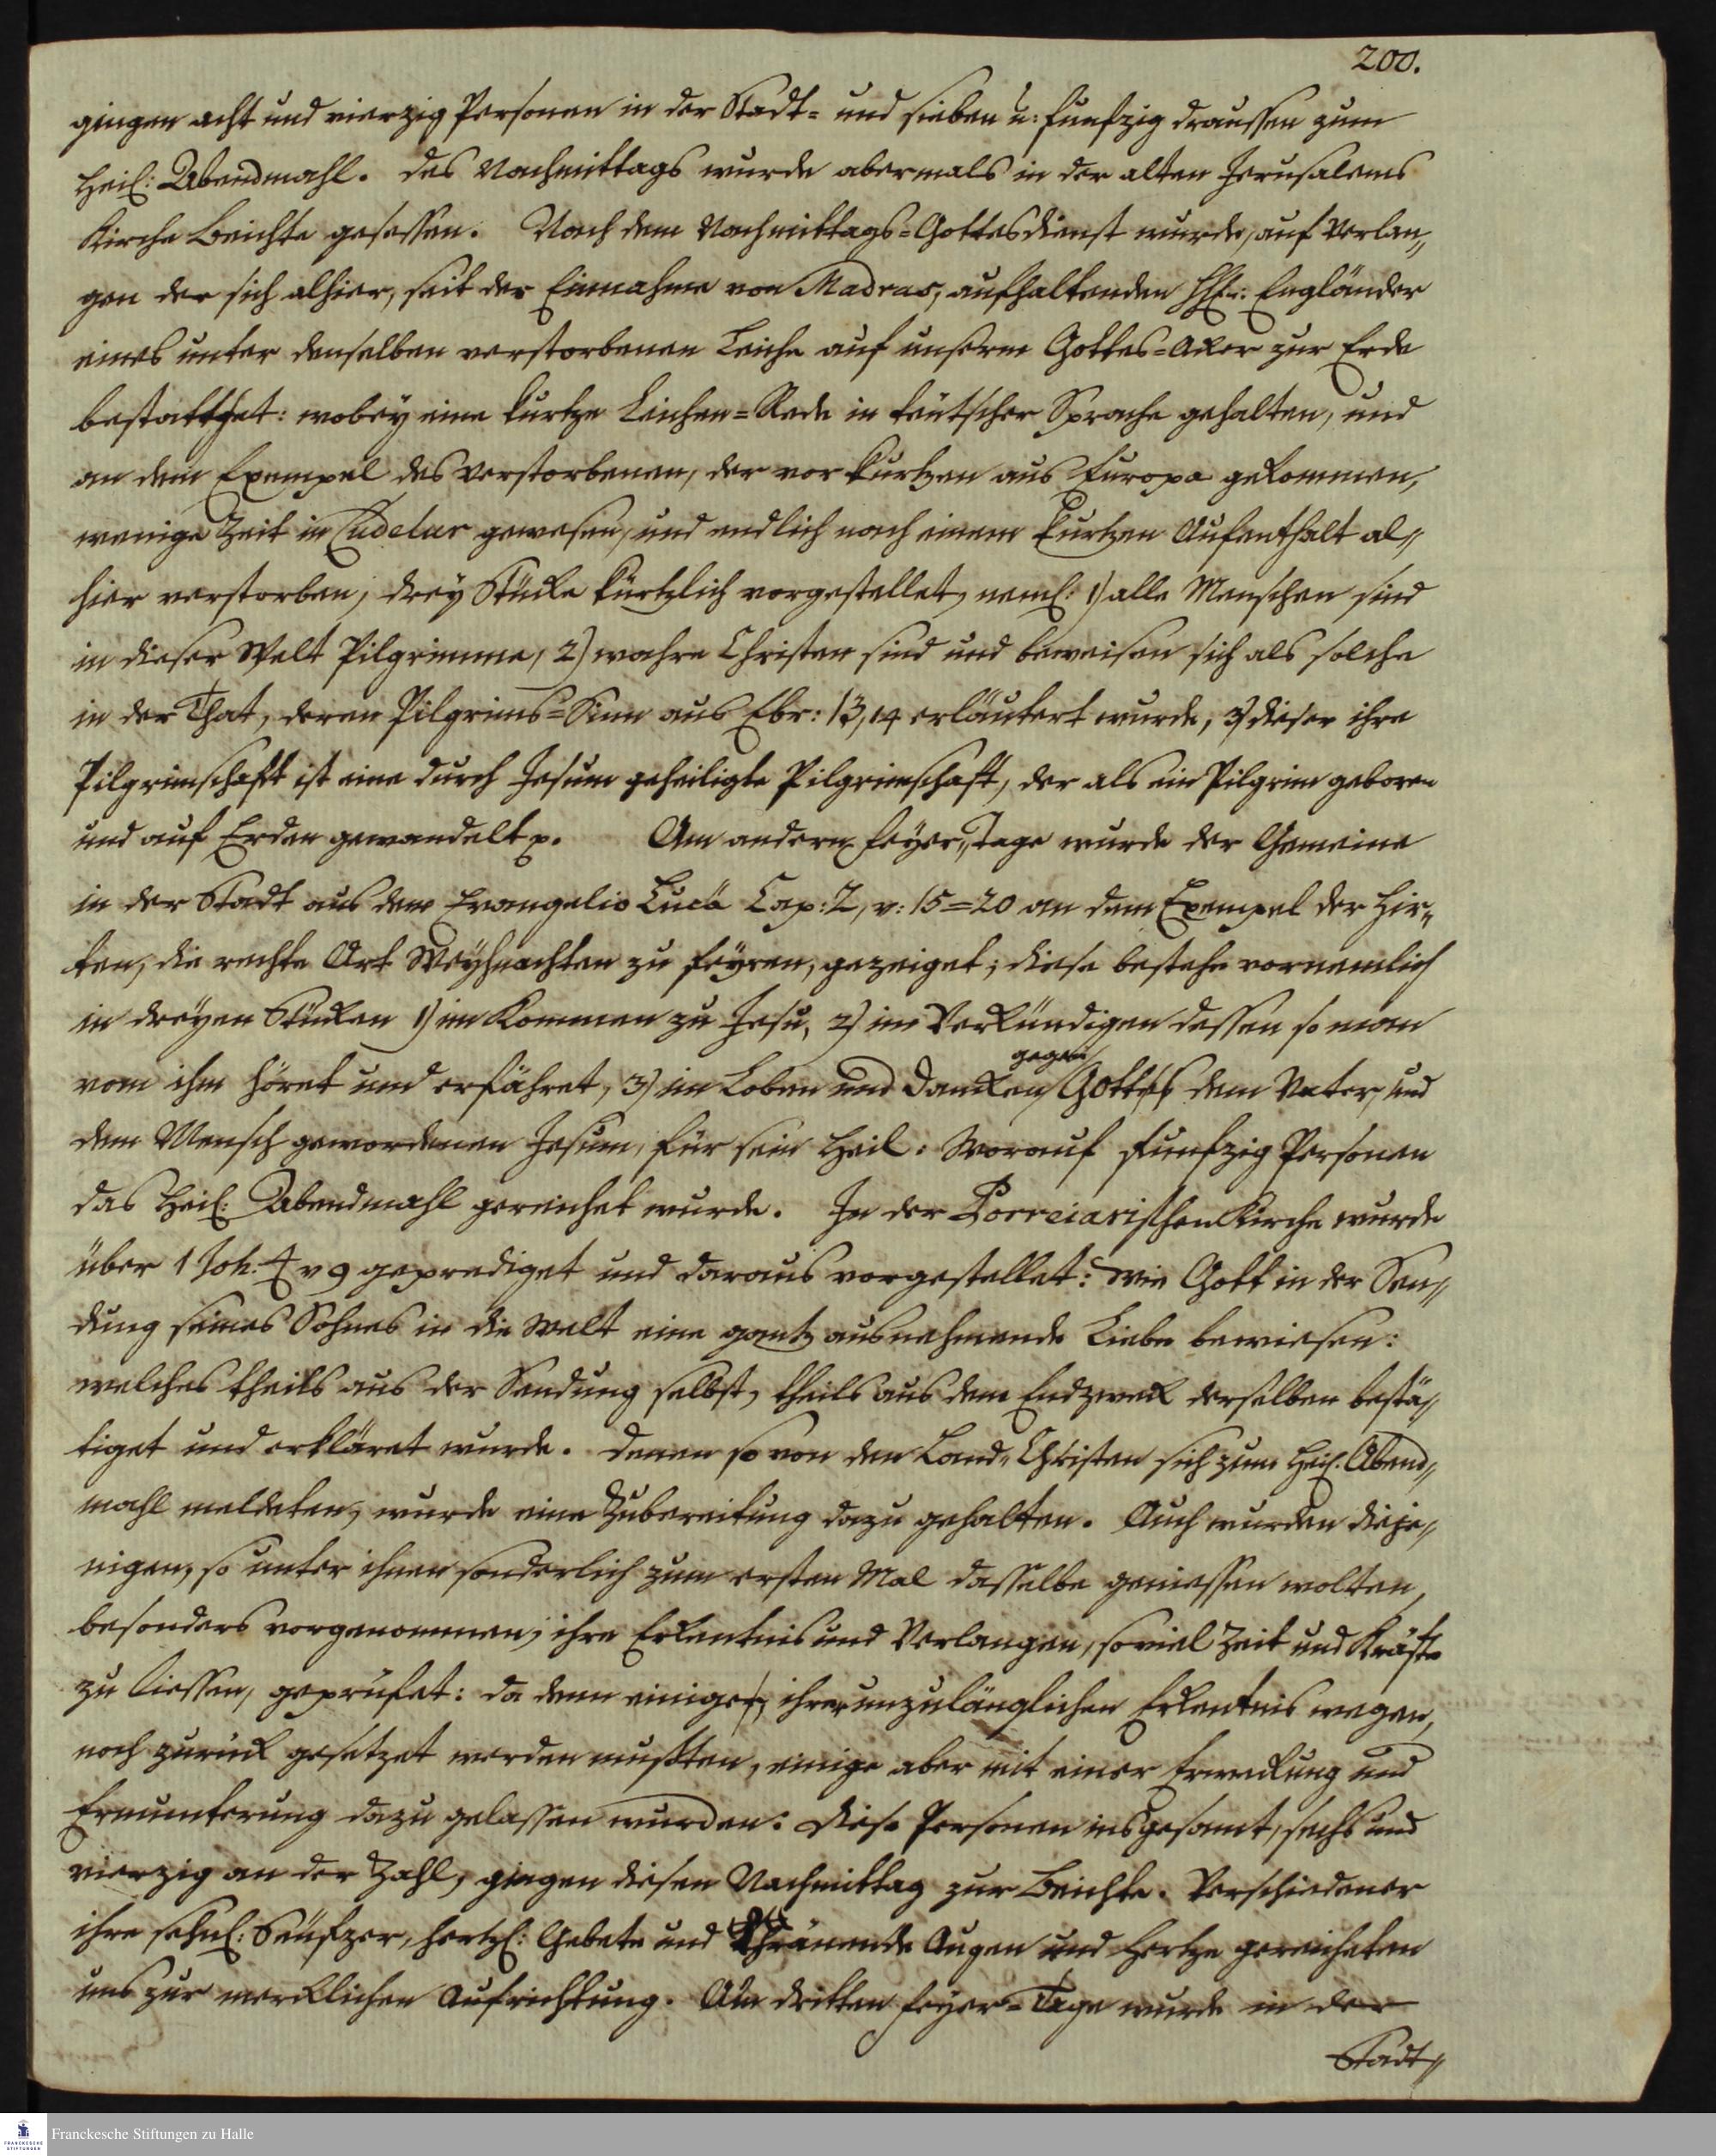 200.
gingen acht und vierzig Personen in der Stadt- und sieben u: funfzig draussen zum
Heil: Abendmahl. Des Nachmittags wurde abermals in der alten Jerusalems
Kirche Beichte gesessen. Nach dem Nachmittags-Gottesdienst wurde, auf Verlan„
gen der sich alhier, seit der Einnahme von Madras, aufhaltenden HHn: Engländer
eines unter denselben verstorbenen Leiche auf unserm Gottes-Aker zur Erde
bestattet: wobey eine kurtze Leichen-Rede in teutscher Sprache gehalten, und
an dem Exempel des Verstorbenen, der vor kurtzen aus Europa gekommen,
wenige Zeit in Cudelur gewesen, und endlich nach einem kurtzen Aufenthalt al„
hier verstorben, drey Stücke kürtzlich vorgestellet, neml: 1) alle Menschen sind
in dieser Welt Pilgrimme, 2) wahre Christen sind und beweisen sich als solche
in der That, deren Pilgrims-Sinn aus Ebr: 13, 14 erläutert wurde, 3) dieser ihre
Pilgrimschaft ist eine durch Jesum geheiligte Pilgrimschaft, der als ein Pilgrim geboren
und auf Erden gewandelt p. Am andern Feyer„Tage wurde der Gemeine
in der Stadt aus dem Evangelio Lucä Cap: 2, v: 15=20 an dem Exempel der Hir„
ten, die rechte Art Weyhnachten zu feyren, gezeiget; diese bestehe vornemlich
in dreyen Stücken 1) im Kommen zu Jesu, 2) im Verkündigen dessen so man
gegen
vom ihm höret und erfähret, 3) im Loben und Dancken Gottes dem Vater, und
dem Mensch gewordenen Jesum, für sein Heil: Worauf funfzig Personen
das Heil: Abendmahl gereichet wurde. In der Porreiarischen Kirche wurde
über 1 Joh. 4 v 9 geprediget und daraus vorgestellet: Wie Gott in der Sen„
dung seines Sohnes in die Welt eine gantz ausnehmende Liebe bewiesen:
welches theils aus der Sendung selbst, theils aus dem Endzweck derselben bestä„
tiget und erkläret wurde. Denen so von den Land-Christen sich zum Heil. Abend„
mahl meldeten, wurde eine Zubereitung dazu gehalten. Auch wurden dieje„
nigen, so unter ihnen sonderlich zum ersten Mal dasselbe geniessen wolten,
besonders vorgenommen, ihre Erkentnis und Verlangen, soviel Zeit und Kräfte
zu liessen, geprüfet: da denn einige, ihrer unzulänglichen Erkentnis wegen,
noch zurück gesetzet werden mussten, einige aber mit einer Erweckung und
Ermunterung dazu gelassen wurden: Diese Personen insgesamt, sechs und
vierzig an der Zahl, gingen diesen Nachmittag zur Beichte. Verschiedener
ihre sehnl: Seufzer, hertzl: Gebete und Thränende Augen und Hertze gereicheten
uns zur mercklichen Aufrichtung. Am dritten Feyer-Tage wurde in der
Stadt„
Franckesche Stiftungen zu Halle
FRANCKESCHE
STIFTUNGEN